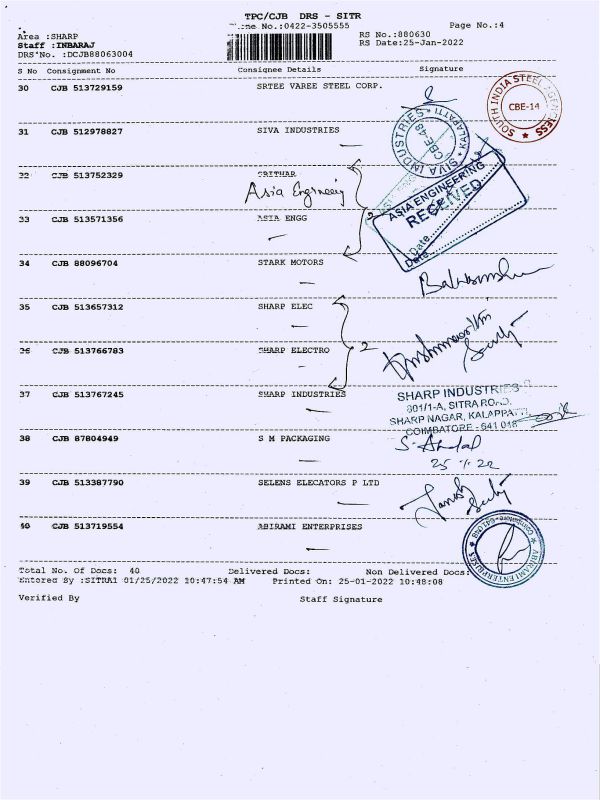 TPC/CJB DRS - SITR
ne No.:0422-3505555 Page No.:4
Area :SHARP RS No.:880630
Staff :INBARAJ RS Date:25-Jan-2022
DRS No. :DCJB88063004
S No Consignment No Consignee Details Signature
30 CJB 513729159 SRTEE VAREE STEEL CORP.
SOUTH INDIA STEEL AGENCIESS
CBE-14
31 CJB 512978827 SIVA INDUSTRIES
SIVA INDUSTRIES KALAPATTI
CBE-48
32 CJB 513752329 SRITHAR
Asia Engineeing
ASIA ENGINEERING
RECEIVED
Date
Date
2
33 CJB 513571356 ASIA ENGG
34 CJB 88096704 STARK MOTORS
35 CJB 513657312 SHARP ELEC
36 CJB 513766783 SHARP ELECTRO 2
37 CJB 513767245 SHARP INDUSTRIES
SHARP INDUSTRIES
801/1-A, SITRA ROAD.
SHARP NAGAR, KALAPPATTI
COIMBATORE - 641 048
38 CJB 87804949 S M PACKAGING
25 1 22
39 CJB 513387790 SELENS ELECATORS P LTD
40 CJB 513719554 ABIRAMI ENTERPRISES
ABIRAMI ENTERPRISES Coimbatore-641 048
Total No. Of Docs: 40 Delivered Docs: Non Delivered Docs:
Entered By :SITRA1 01/25/2022 10:47:54 AM Printed On: 25-01-2022 10:48:08
Verified By Staff Signature